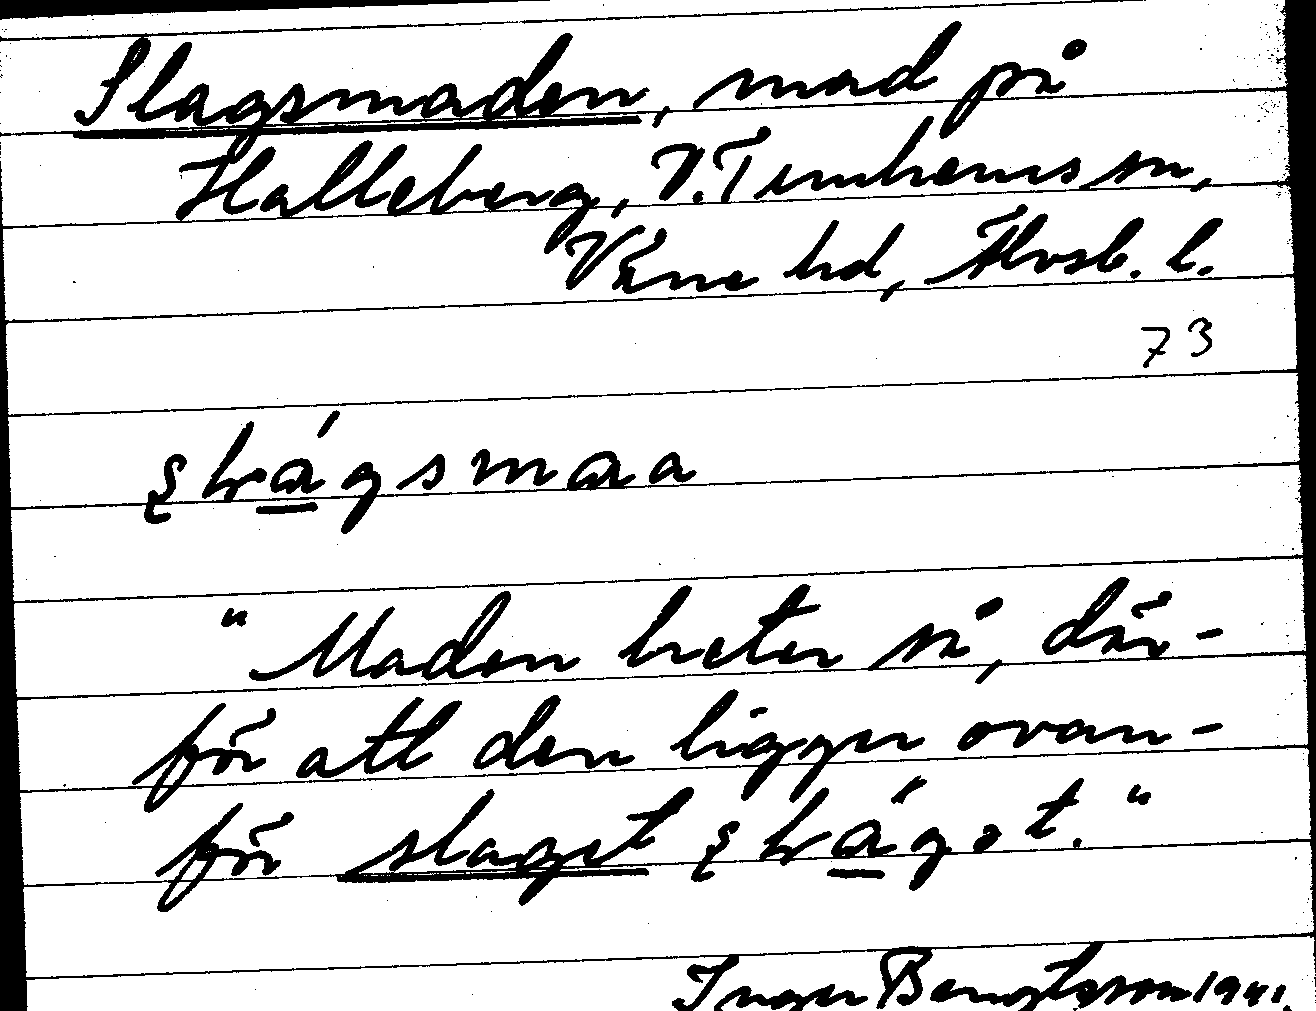 Slagsmaden, mad på
Halleberg, V. Tunhems sn,
Väne hd, Älvsb. l.
73
"Maden heter så, där-
för att den ligger ovan-
för slaget
Inger Bengtsson 1941.